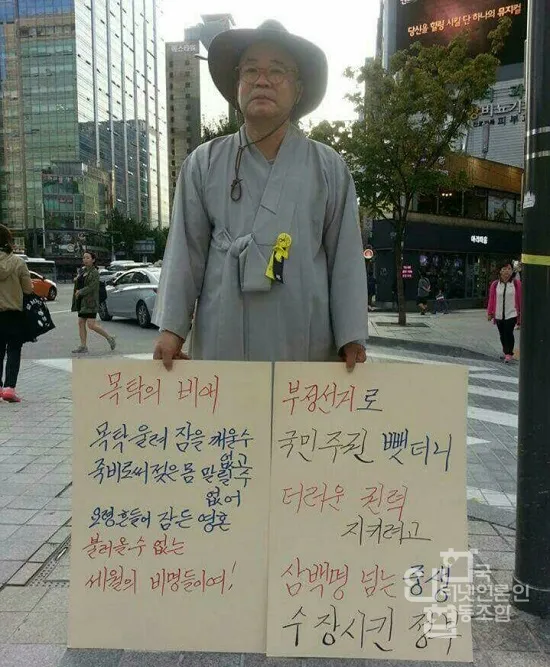 당신을 힐링 시킬 단 하나의 뮤지컬
목탁의 비애
목탁 울려 잠을 깨울수
없고
죽비로써 젖은 몸 말릴 수
없어
요령흔들어 잠든 영혼
불러올 수 없는
세월의 비명들이여!
부정선거로
국민주권 뺏더니
더러운 권력
지키려고
삼백명 넘는 중생
수장시킨 정부
한국
인터넷언론인
협동조합